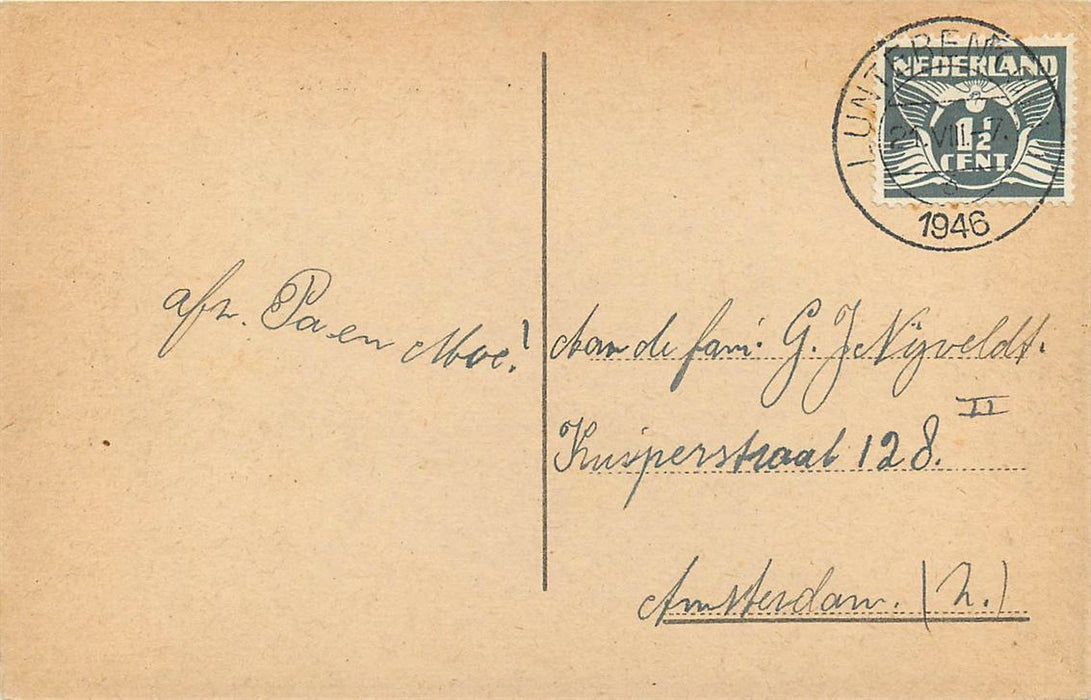 LUNTEREN
NEDERLAND
21.VIII.-7.
1½
CENT
1946
afz. Pa en Moe!
Aan de fam. G. J Nijveldt.
Kuiperstraat 128. II
Amsterdam. (Z.)